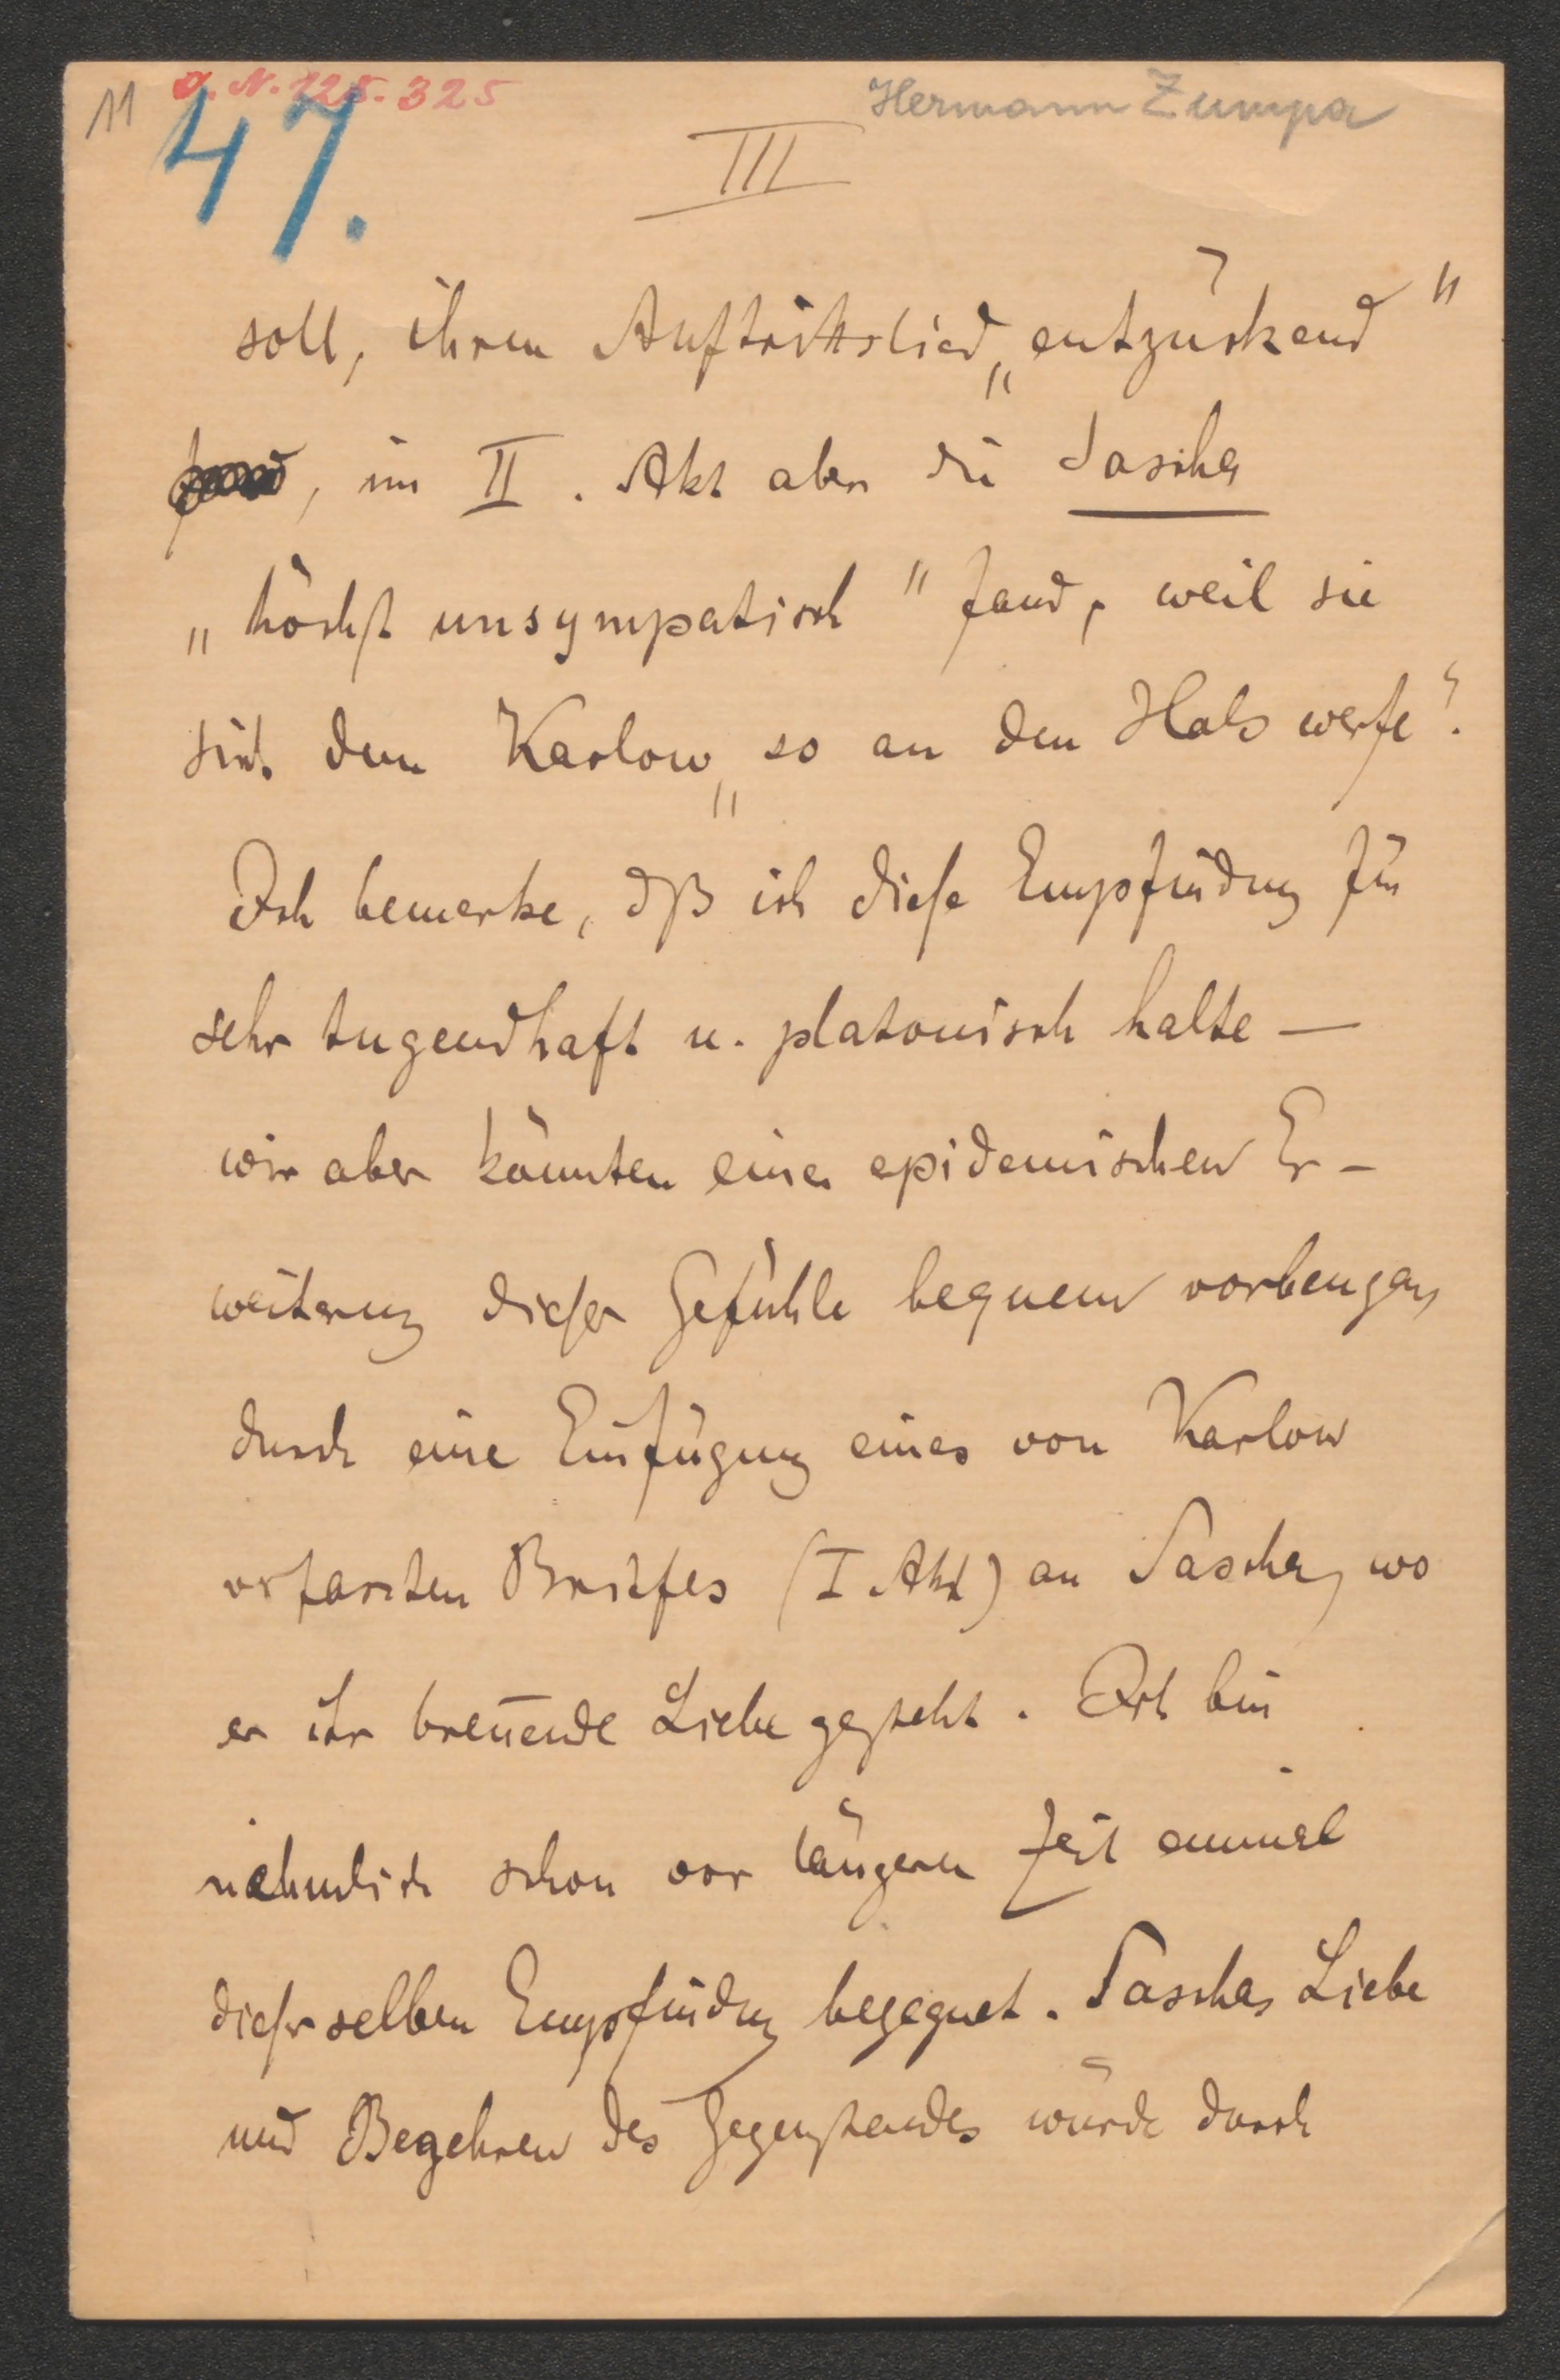 11 J. N. 125.325
Hermann Zumpe
47.
III
soll, ihrem Auftrittslied „entzückend"
, im II. Akt aber die Sascha
„höchst unsympatisch" fand, weil sie
sich dem Karlow „so an den Hals werfe".
Ich bemerke, dß ich diese Empfindung für
sehr tugendhaft u. platonisch halte —
wir aber könnten einer epidemischen Er-
weiterung dieser Gefühle bequem vorbeugen
durch eine Einfügung eines von Karlow
verfassten Briefes (I Akt) an Sascha, wo
er ihr breñende Liebe gesteht. Ich bin
nähmlich schon vor längerer Zeit einmal
dieser selben Empfindung begegnet. Saschas Liebe
und Begehren des Gegenstandes würde durch